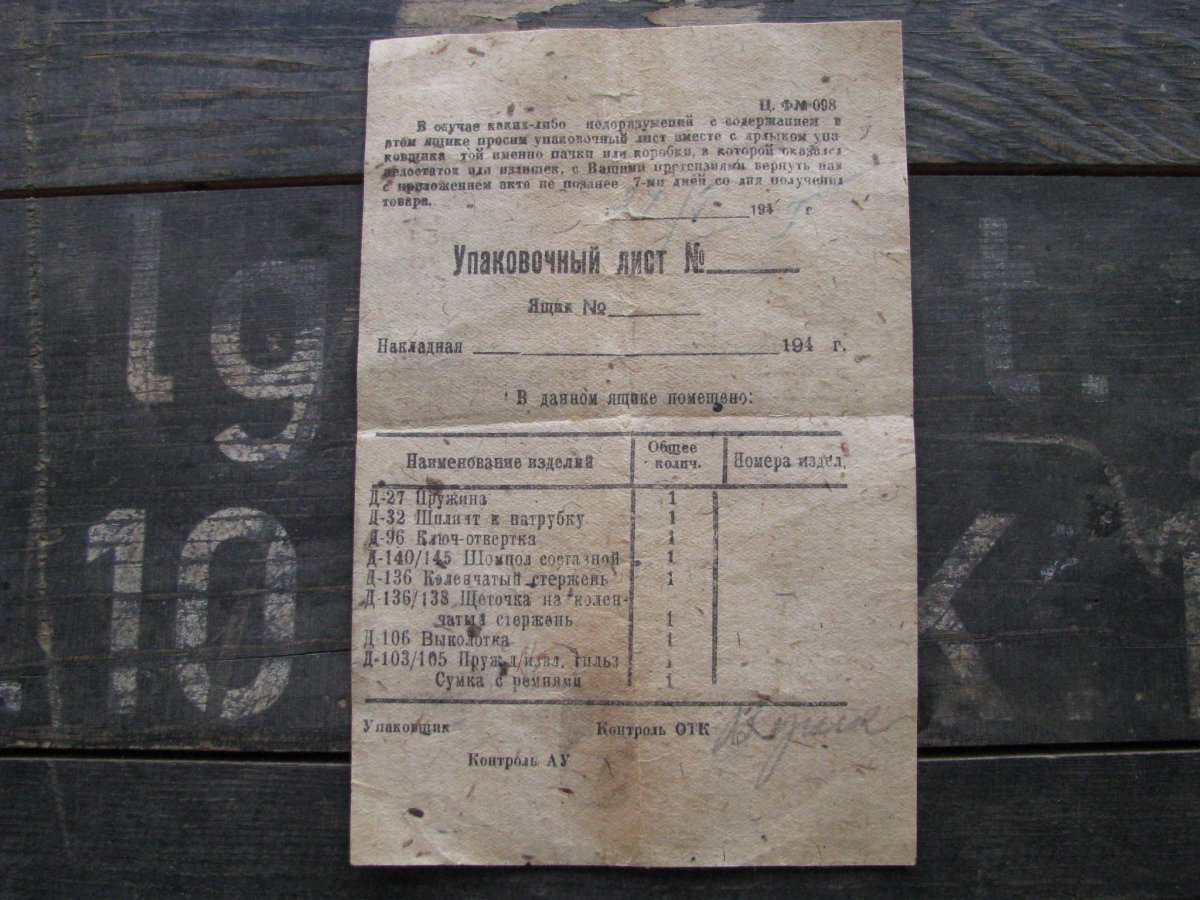 Ц. Ф№ 098
В случае каких-либо недоразумений с содержанием в
этом ящике просим упаковочный лист вместе с ярлыком упа-
ковщика той именно пачки или коробки, в которой оказался
недостаток или излишек, с Вашими претензиями вернуть нам
с приложением акта не позднее 7-ми дней со дня получения
товара.
194 г
Упаковочный лист №
Ящик №
Накладная 194 г.
В данном ящике помещено:
Наименование изделий Общее колич. Номера издел.
Д-27 Пружина 1
Д-32 Шплинт к патрубку 1
Д-96 Ключ-отвертка 1
Д-140/145 Шомпол составной 1
Д-136 Коленчатый стержень 1
Д-136/138 Щеточка на колен-
чатый стержень 1
Д-106 Выколотка 1
Д-103/105 Пружд/извл. гильз 1
Сумка с ремнями 1
Упаковщик Контроль ОТК
Контроль АУ
19 t.
10 К